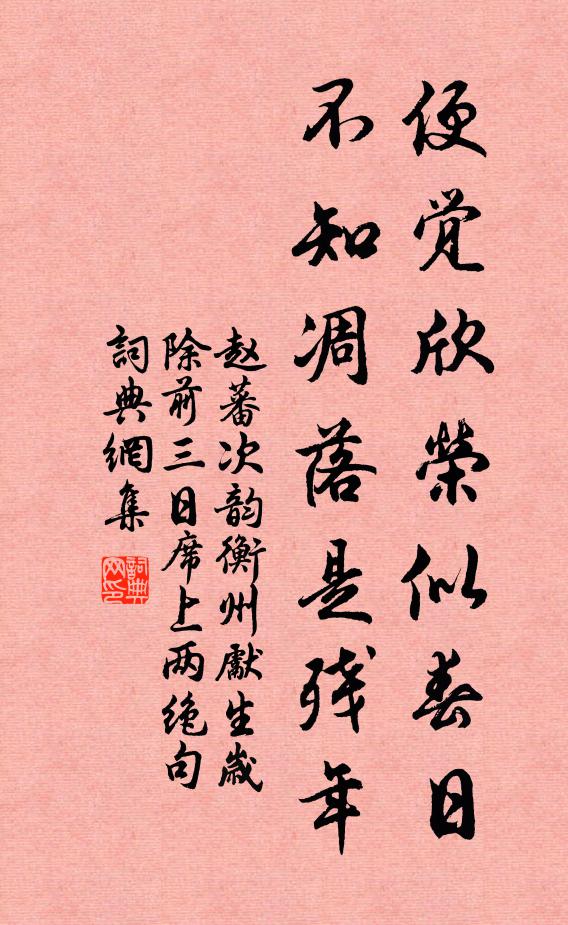 便觉欣荣似春日
不知凋落是残年
赵蕃次韵衡州献生岁
除前三日席上两绝句
词典网集
词典网印